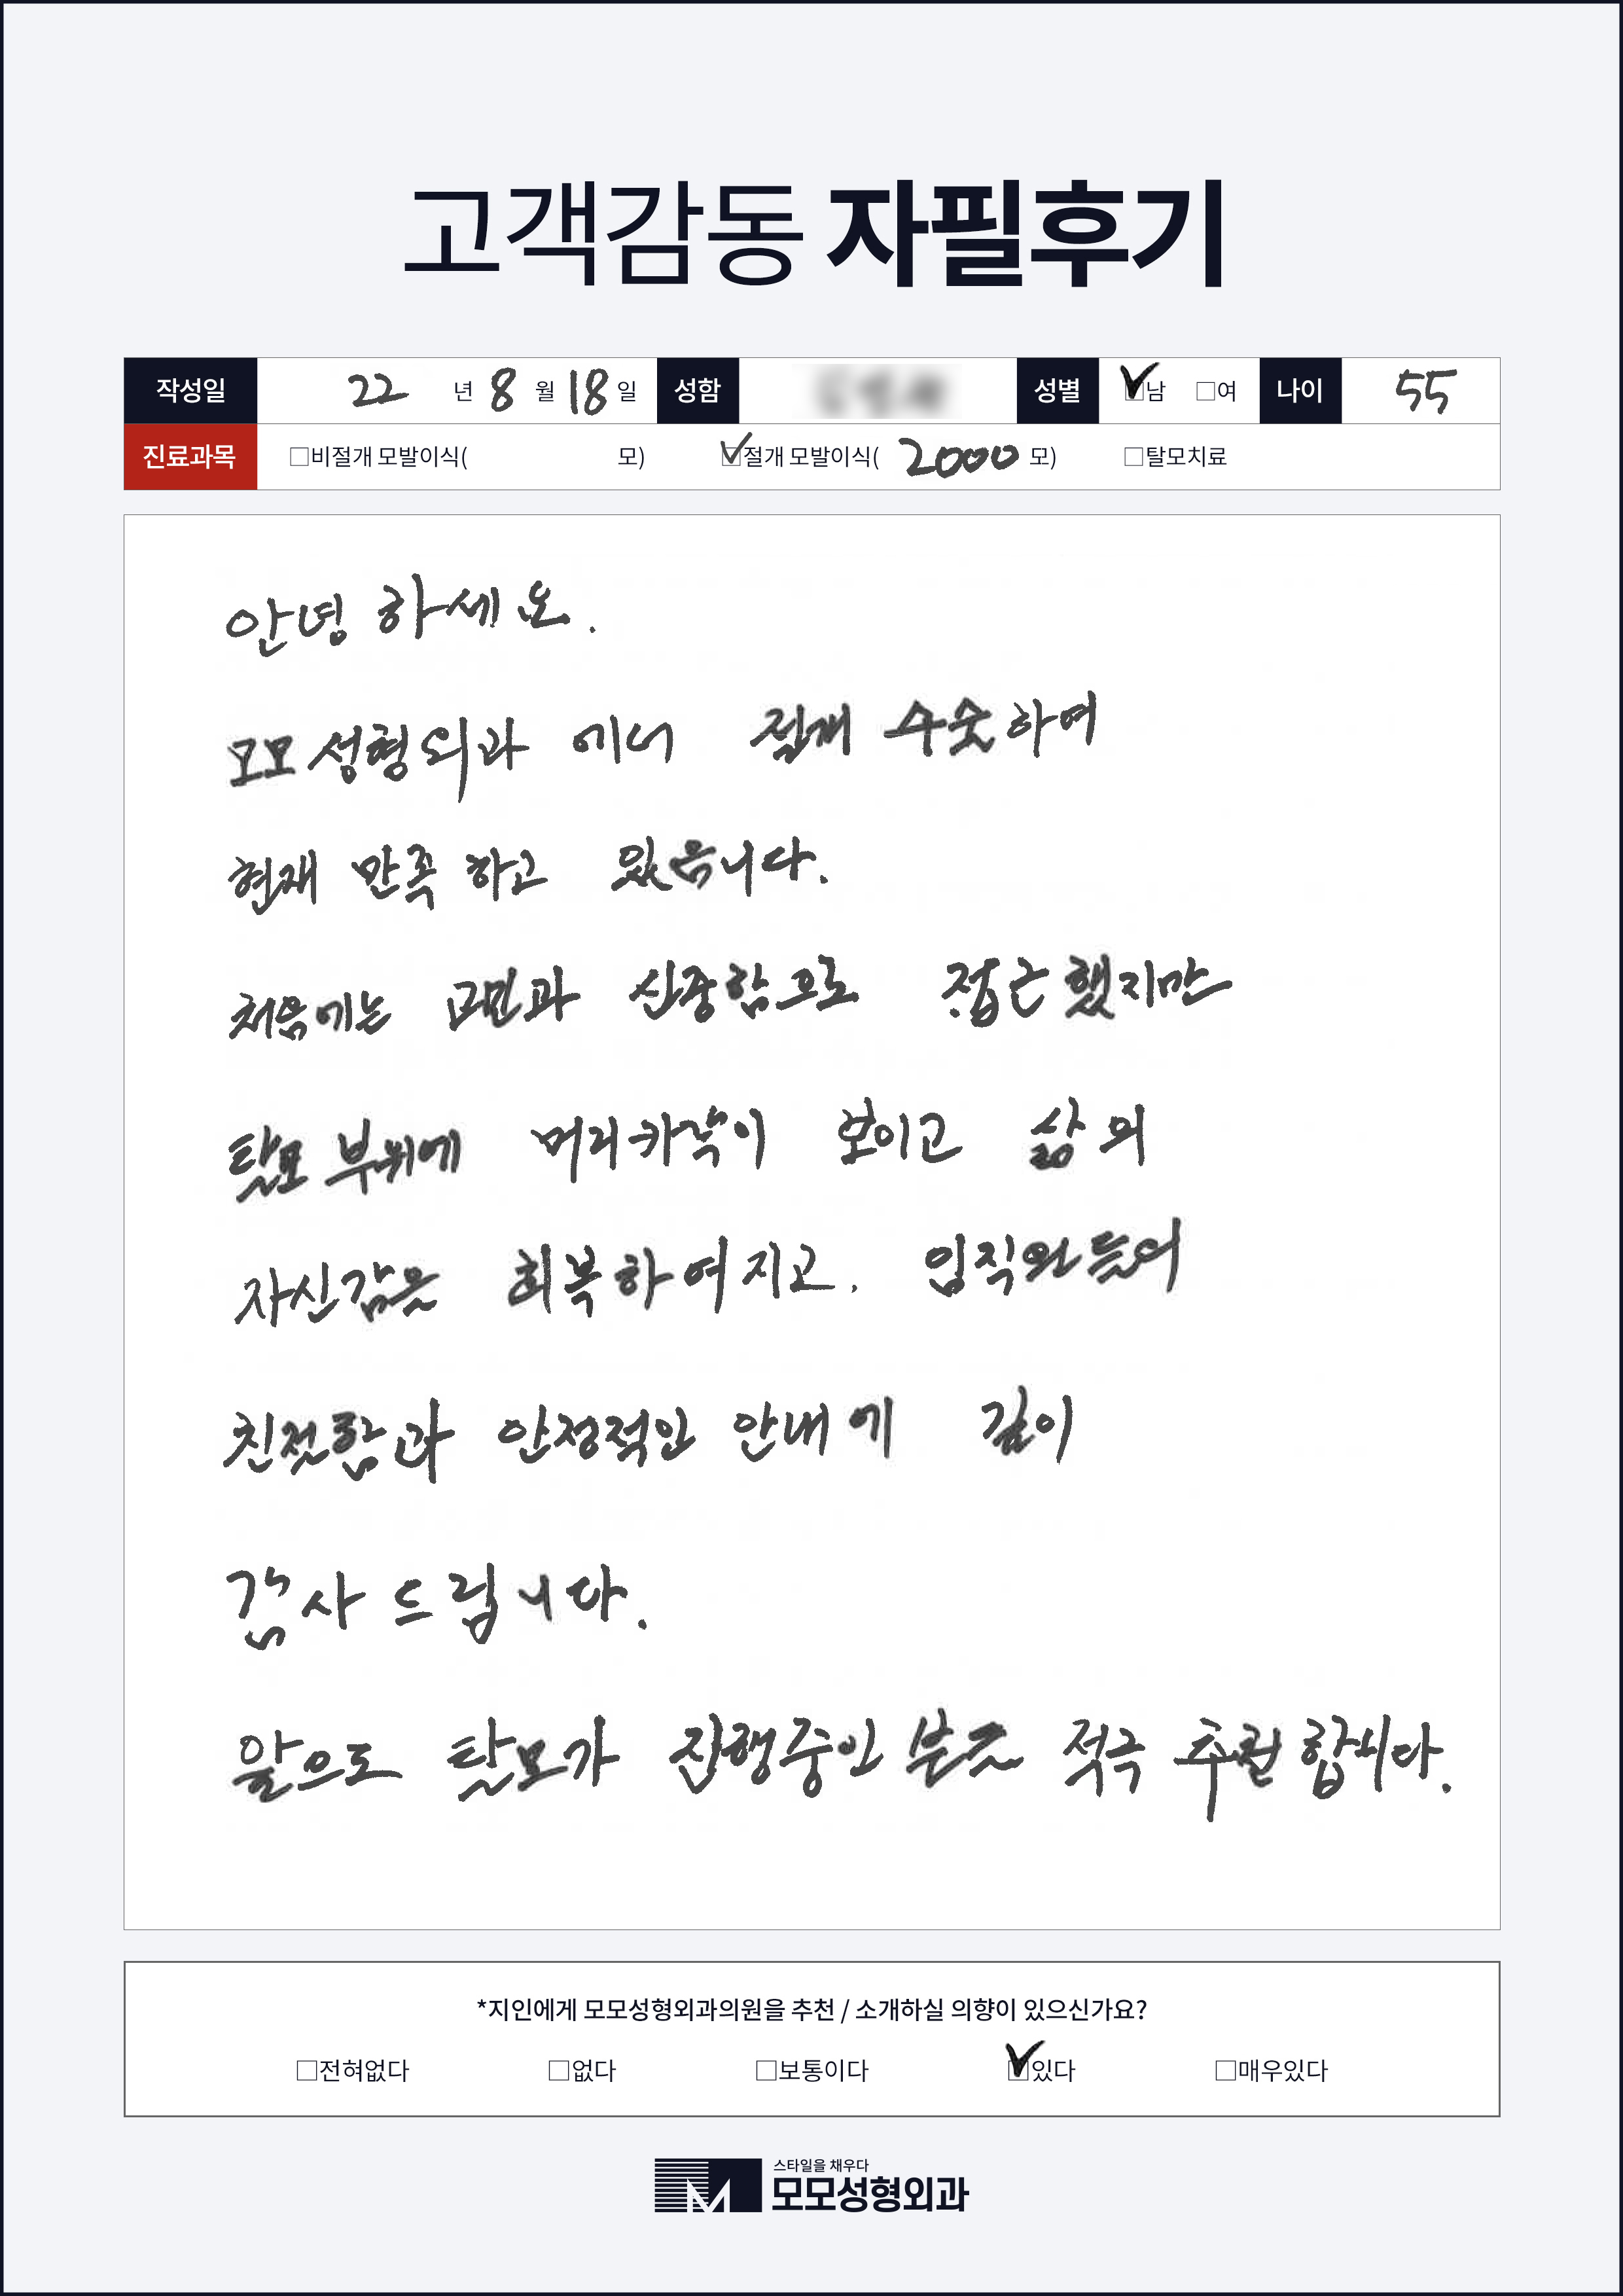 고객감동 자필후기
작성일 22 년 8 월 18 일 성함 성별 ☑남 □여 나이 55
진료과목 □비절개 모발이식( 모) ☑절개 모발이식( 2000 모) □탈모치료
안녕 하세요.
모모성형외과 에너 절개 수숫하여
현재 만족 하고 있음니다.
처음에는 고민과 신중함으로 접근했지만
탈모 부위에 머리카락이 보이고 삶의
자신감은 회복하여지고. 임직원들의
친절함과 안정적인 안내에 깊이
감사 드립니다.
앞으로 탈모가 진행중인 분들 적극 추천합니다.
*지인에게 모모성형외과의원을 추천 / 소개하실 의향이 있으신가요?
□전혀없다 □없다 □보통이다 ☑있다 □매우있다
스타일을 채우다
모모성형외과